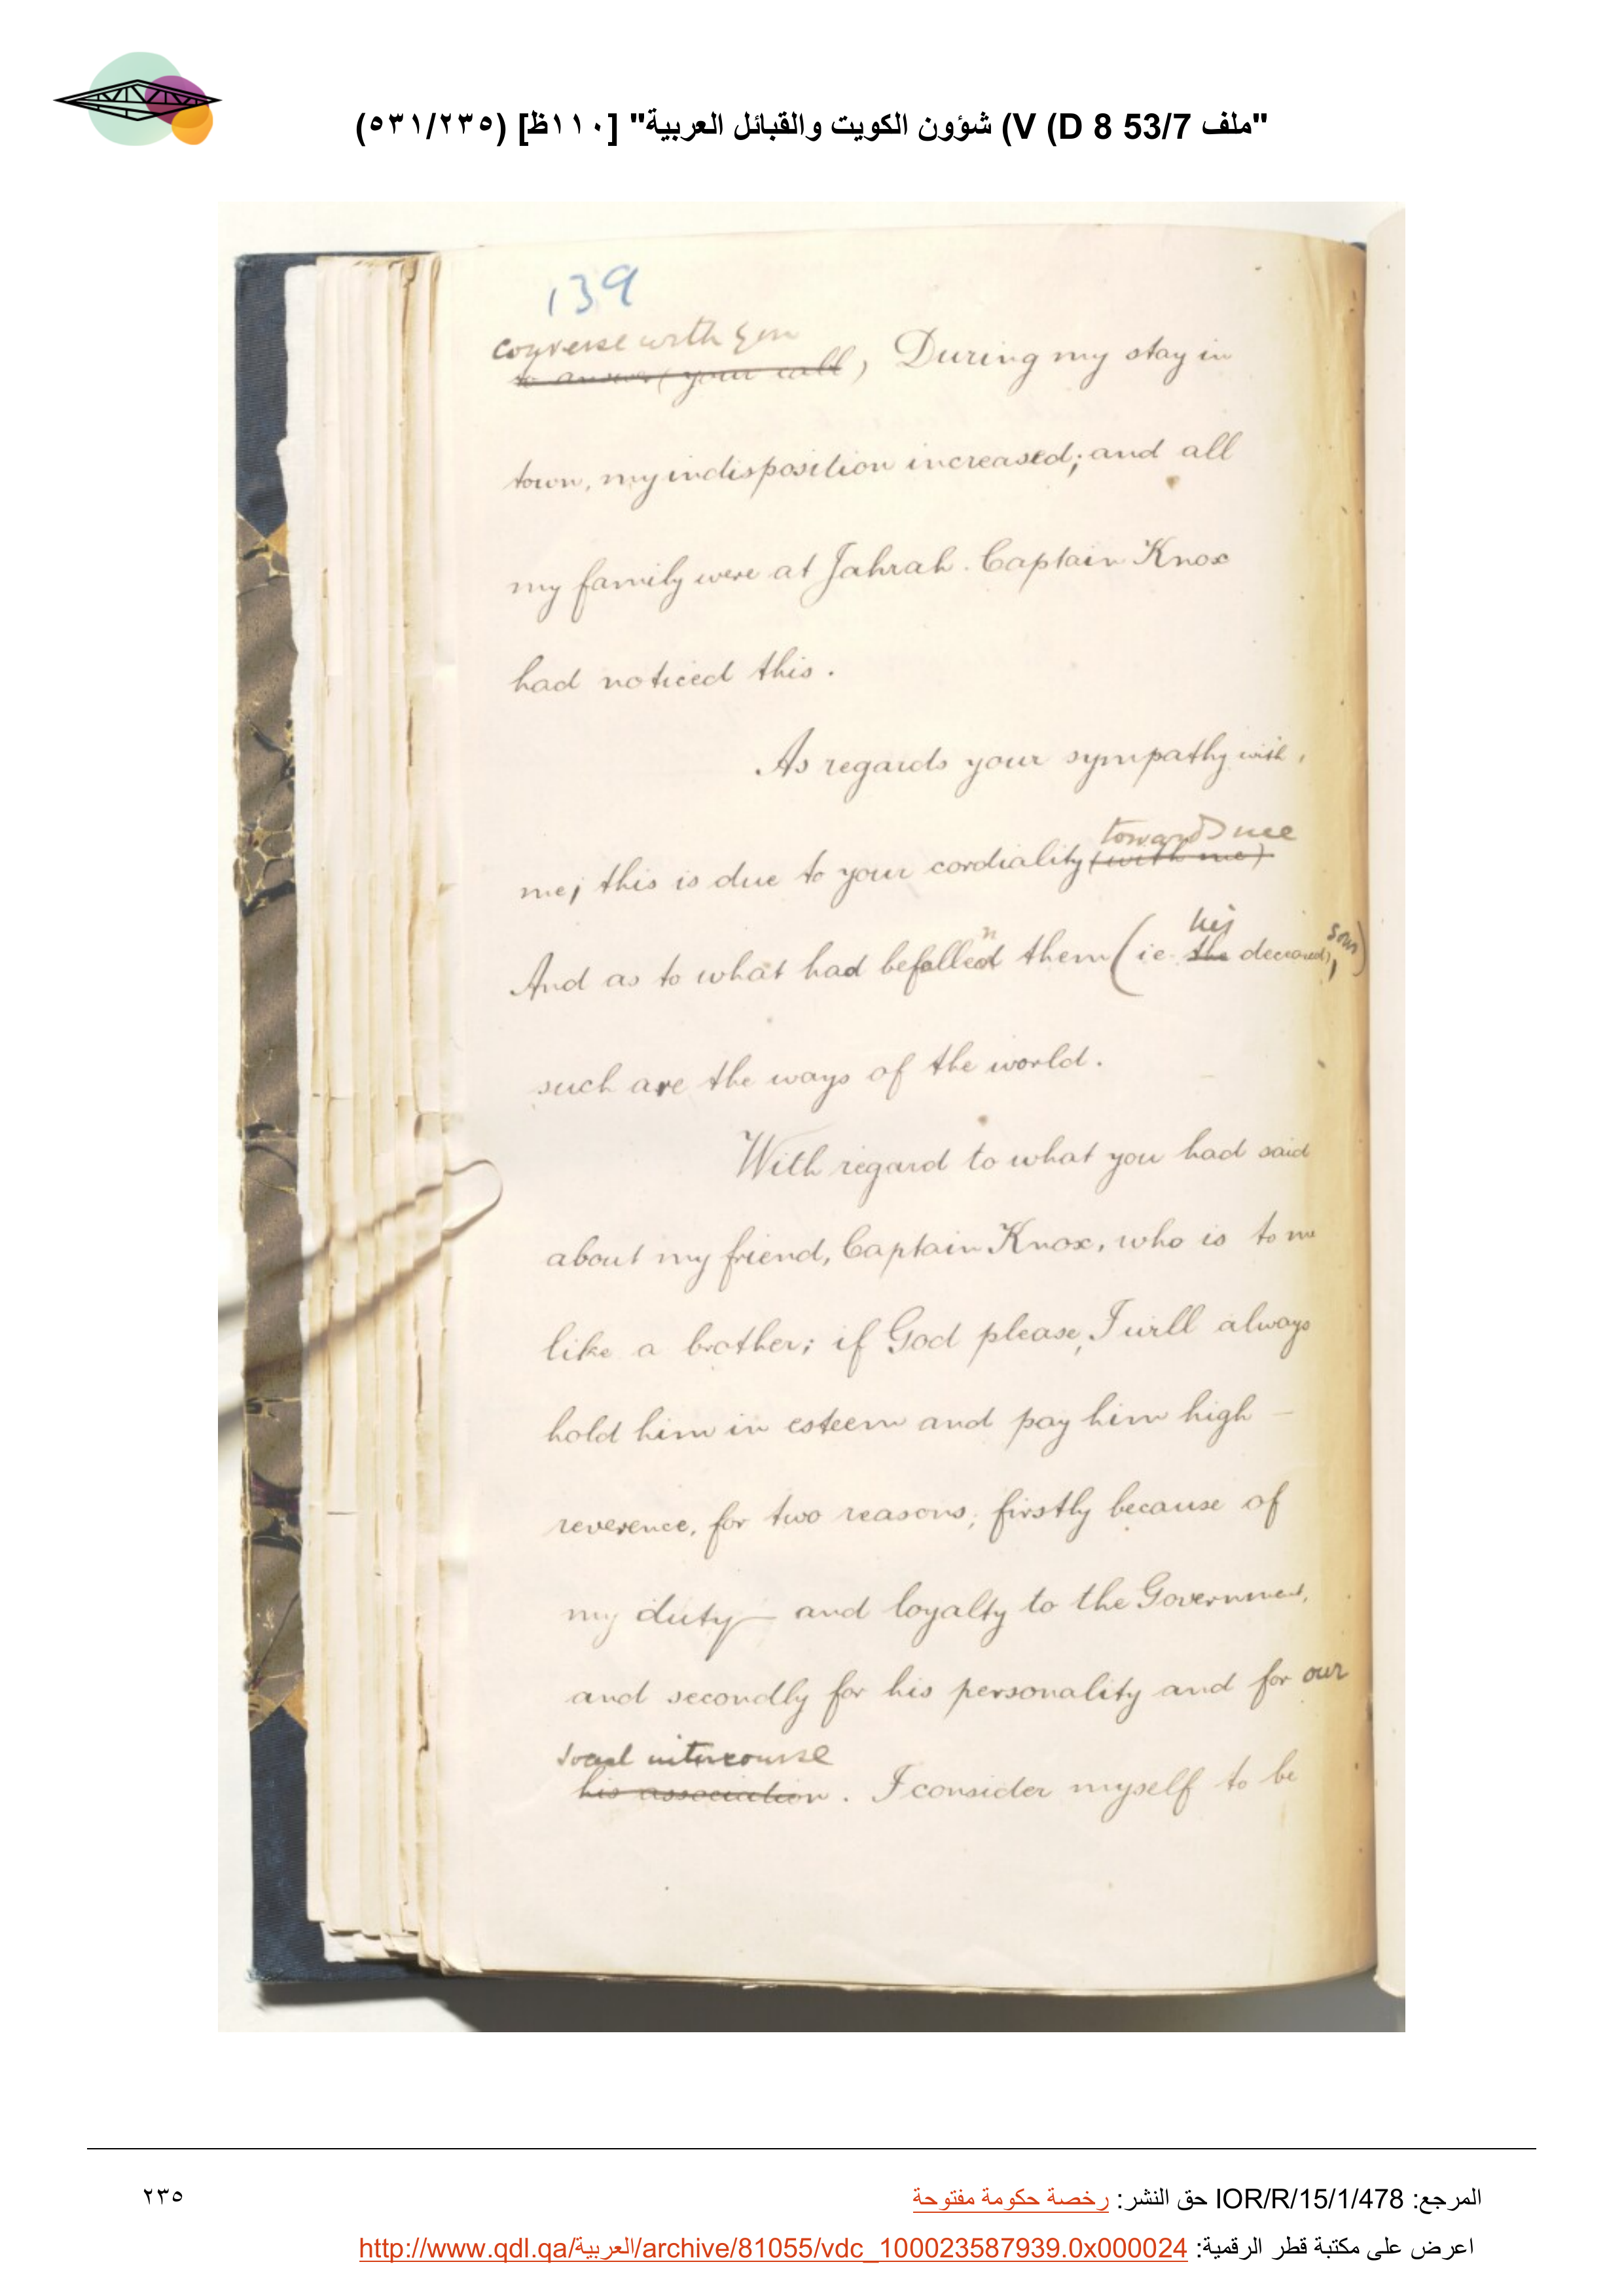 "ملف 53/7 V (D 8) شؤون الكويت والقبائل العربية" [١١٠ظ] (٥٣١/٢٣٥)
139
converse with you
to answer (your call), During my stay in
town, my indisposition increased; and all
my family were at Jahrah. Captain Knox
had noticed this.
As regards your sympathy with,
towards me
me; this is due to your cordiality (with me)
his
And as to what had befallen them (ie. the deceased, son)
such are the ways of the world.
With regard to what you had said
about my friend, Captain Knox, who is to me
like a brother; if God please, I will always
hold him in esteem and pay him high —
reverence, for two reasons; firstly because of
my duty — and loyalty to the Government,
and secondly for his personality and for our
social intercourse
his association. I consider myself to be
المرجع: IOR/R/15/1/478 حق النشر: رخصة حكومة مفتوحة
٢٣٥
اعرض على مكتبة قطر الرقمية: http://www.qdl.qa/العربية/archive/81055/vdc_100023587939.0x000024